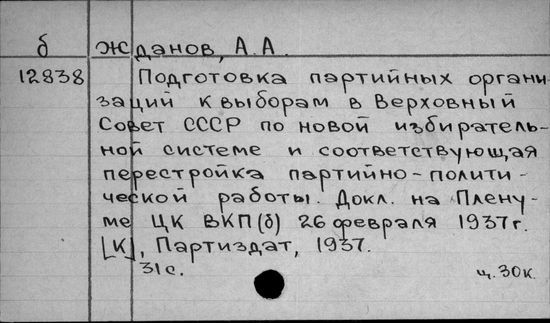 б Жданов, А. А.
12838 Подготовка партийных органи-
заций к выборам в Верховный
Совет СССР по новой избиратель-
ной системе и соответствующая
перестройка партийно-полити-
ческой работы. Докл. на Плену-
ме ЦК ВКП(б) 26 февраля 1937 г.
[К], Партиздат, 1937.
31 с. ц. 30 к.